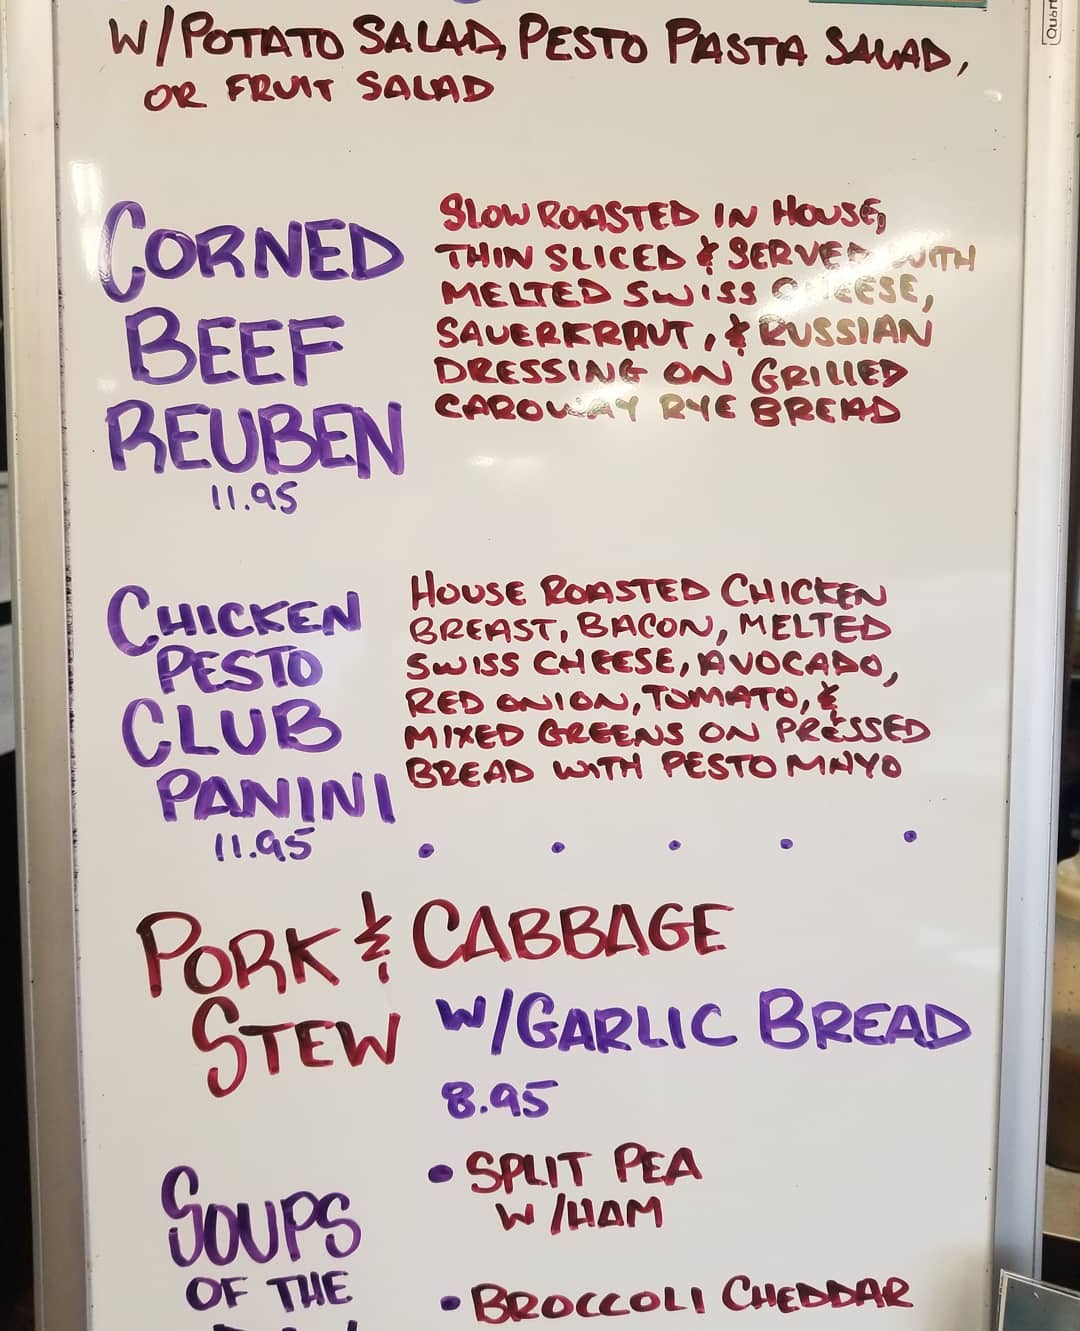 W/POTATO SALAD, PESTO PASTA SALAD,
OR FRUIT SALAD
CORNED
BEEF
REUBEN
11.95
SLOW ROASTED IN HOUSE,
THIN SLICED & SERVED WITH
MELTED SWISS CHEESE,
SAUERKRAUT, & RUSSIAN
DRESSING ON GRILLED
CAROWAY RYE BREAD
CHICKEN
PESTO
CLUB
PANINI
11.95
HOUSE ROASTED CHICKEN
BREAST, BACON, MELTED
SWISS CHEESE, AVOCADO,
RED ONION, TOMATO, &
MIXED GREENS ON PRESSED
BREAD WITH PESTO MAYO
PORK & CABBAGE
STEW W/GARLIC BREAD
8.95
SOUPS
OF THE
• SPLIT PEA
W/HAM
• BROCCOLI CHEDDAR